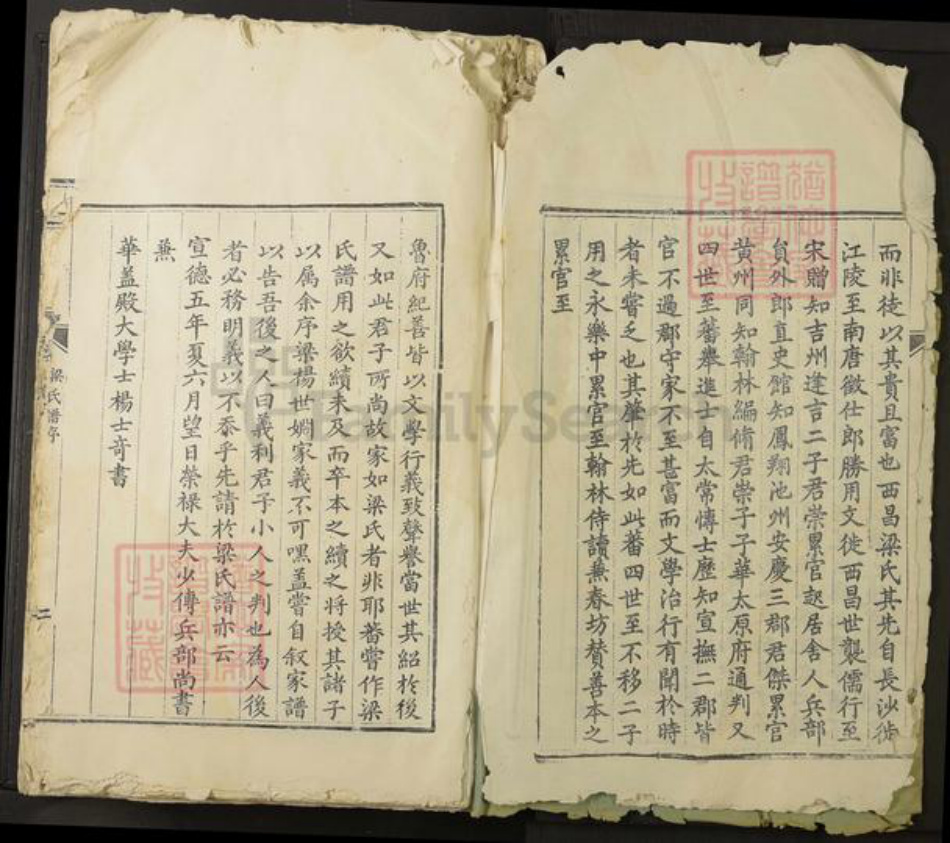 而非徒以其貴且富也西昌梁氏其先自長沙徙
江陵至南唐徵仕郎勝用文徙西昌世襲儒行至
宋贈知吉州逢吉二子君崇累官起居舍人兵部
員外郎直史館知鳳翔池州安慶三郡君傑累官
黃州同知翰林編脩君崇子子華太原府通判又
四世至蕃舉進士自太常慱士歷知宣撫二郡皆
官不過郡守家不至甚富而文學治行有聞於時
者未嘗乏也其肇於先如此蕃四世至不移二子
用之永樂中累官至翰林侍讀蒹春坊賛善本之
累官至
魯府紀善皆以文學行義致聲譽當世其紹於後
又如此君子所尚故家如梁氏者非耶蕃嘗作梁
氏譜用之欲續未及而卒本之續之將授其諸子
以属余序梁楊世婣家義不可嘿盖嘗自叙家譜
以告吾後之人曰義利君子小人之判也為人後
者必務明義以不忝乎先請於梁氏譜亦云
宣德五年夏六月望日榮祿大夫少傅兵部尚書
蒹
華盖殿大學士楊士奇書
梁氏譜序
二
FamilySearch